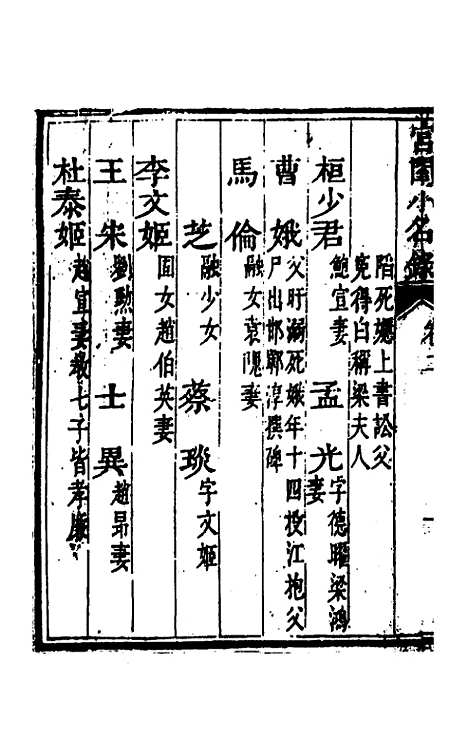 宮閨小名錄
卷二
一
陷死嫕上書訟父
寃得白稱梁夫人
桓少君 鮑宣妻 孟光 字德曜梁鴻
妻
曹娥 父盱溺死娥年十四投江抱父
尸出邯鄲淳撰碑
馬倫 融女袁隗妻
芝 融少女 蔡琰 字文姬
李文姬 固女趙伯英妻
王宋 劉勲妻 士異 趙昂妻
杜泰姬 趙宣妻教七子皆孝廉